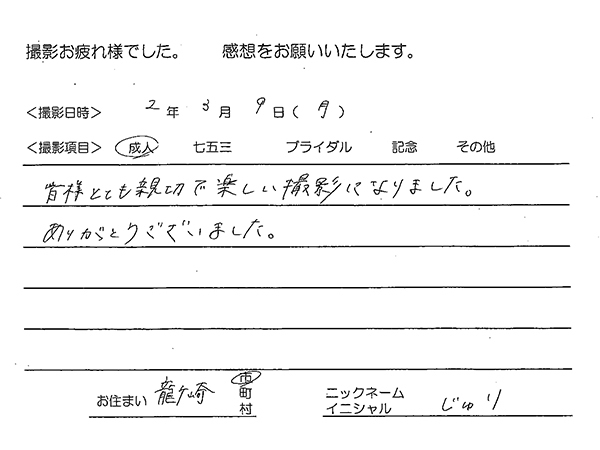 撮影お疲れ様でした。 感想をお願いいたします。
<撮影日時> 2年 3月 9日(月)
<撮影項目> 成人 七五三 ブライダル 記念 その他
皆様とても親切で楽しい撮影になりました。
ありがとうございました。
お住まい 龍ケ崎 市 町 村 ニックネーム イニシャル じゅり